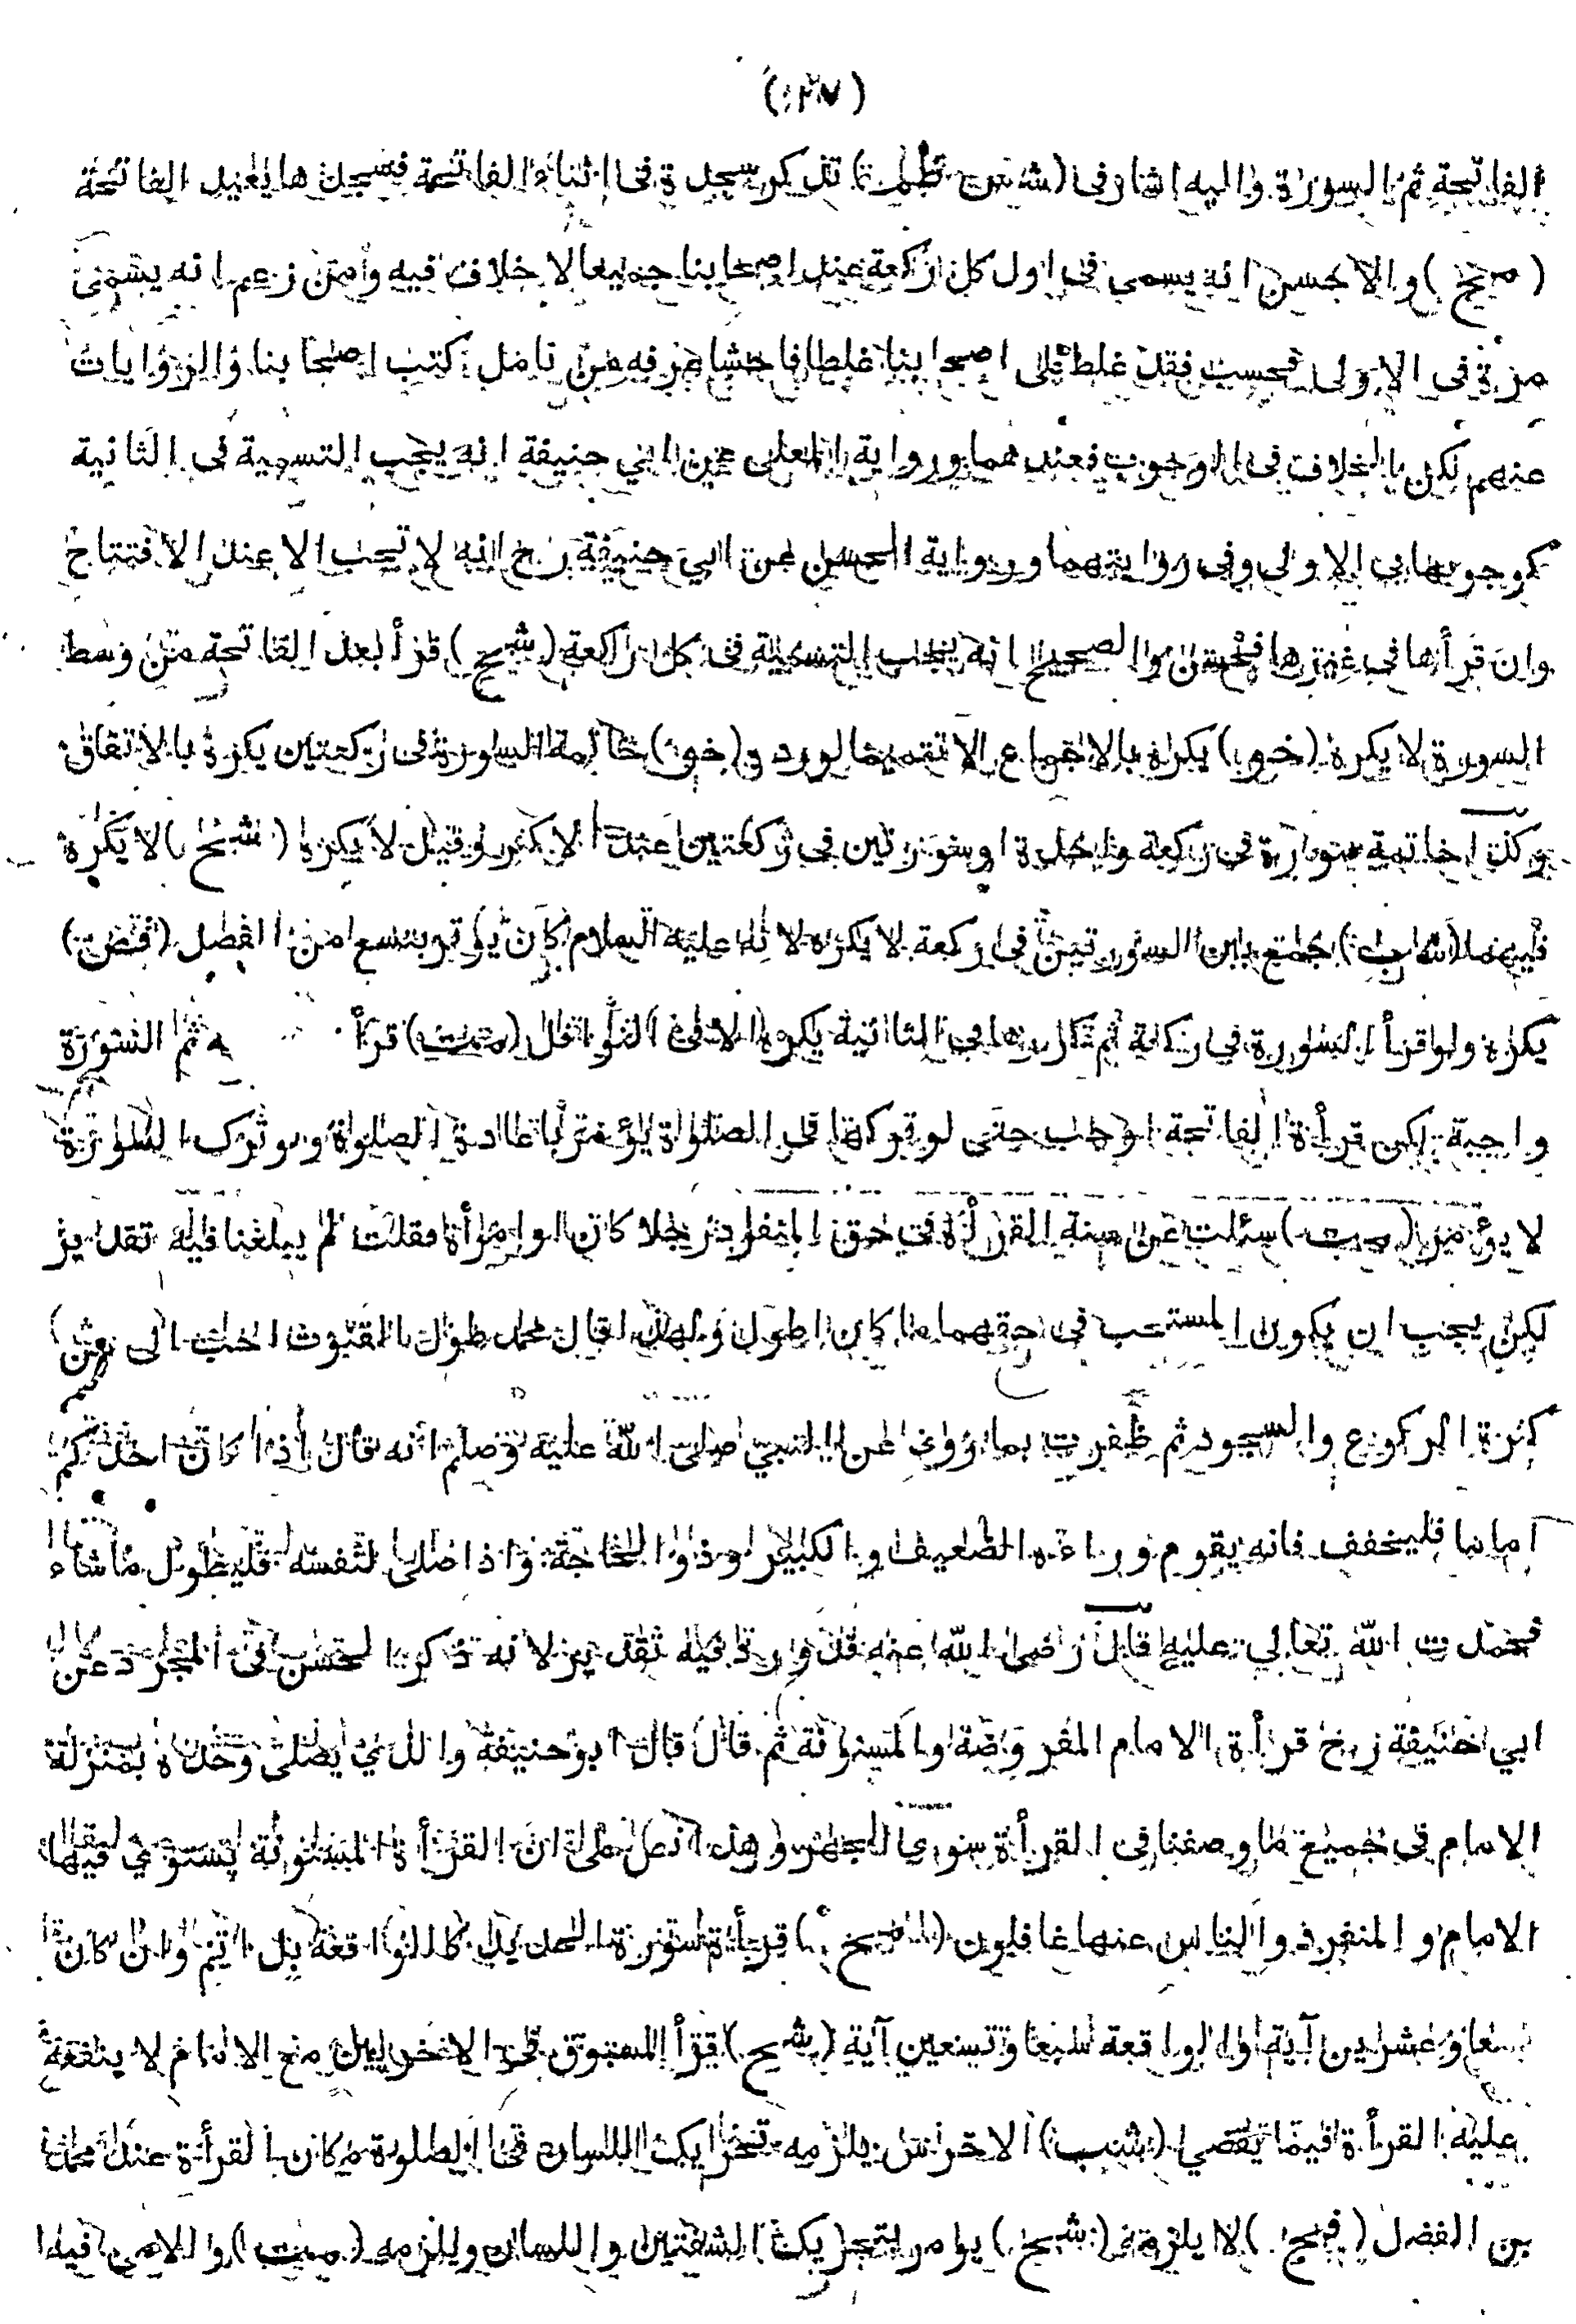 الفاتحة ثم السورة واليه اشار فى ( تذكر سجدة فى اثناء الفاتحة فسجد ها يعيد الفاتحة
(صح) والاحسن انه يسمى فى اول كل ركعة عند اصحابنا جميعا لا خلاف فيه ومن زعم انه يسمى
مرة فى الاولى فحسب فقد غلط على اصحابنا غلطا فاحشا عرفه من تامل كتب اصحابنا والروايات
عنهم لكن الخلاف فى الوجوب فعندهما ورواية المعلى عن ابي حنيفة انه يجب التسمية فى الثانية
كوجوبها فى الاولى وفى روايتهما ورواية الحسن عن ابي حنيفة رح انه لا تجب الا عند الافتتاح
وان قرأها في غيرها فحسن والصحيح انه يجب التسمية فى كل ركعة (شح) قرأ بعد الفاتحة من وسط
السورة لا يكره (خو) يكره بالاجماع الا تقديما لورد و(خو) خاتمة السورة فى ركعتين يكره بالاتفاق
وكذا خاتمة سورة فى ركعة واحدة او سورتين في ركعتين عند الاكثر وقيل لا يكره (شح) لا يكره
فيهما ( جمع بين السورتين فى ركعة لا يكره لانه عليه السلام كان يوتر بتسع من الفصل (
يكره ولو قرأ السورة في ركعة ثم كررها في الثانية يكره الا فى النوافل ( قرأ ثم السورة
واجبة لكن قرأة الفاتحة اوجب حتى لو تركها فى الصلواة يؤمر باعادة الصلوة ولو ترك السورة
لا يؤمر (مت) سئلت عن سنة القرأة في حق المنفرد رجلا كان او امرأة فقلت لم يبلغنا فيه تقدير
لكن يجب ان يكون المستحب فى حقهما ما كان اطول ولهذا قال محمد طول القنوت احب الى من)
كثرة الركوع والسجود ثم ظفرت بما روى عن النبي صلى الله عليه وصلم انه قال اذا كان احدكم
اماما فليخفف فانه يقوم وراءه الضعيف والكبير وذو الحاجة واذا صلى لنفسه فليطول ما شاء
فحمدت الله تعالي عليه قال رضى الله عنه قد ورد فيه تقدير لانه ذكر الحسن فى المجرد عن
ابي حنيفة رح قرأة الامام المفروضة والمسنونة ثم قال قال ابو حنيفة والذي يصلى وحده بمنزلة
الامام في جميع ما وصفنا فى القرأة سوى الجهر وهذا نص على ان القرأة المسنونة يستوي فيها
الامام والمنفرد والناس عنها غافلون ( قرأة سورة الحديد كالواقعة بل اتم وان كان
تسعا وعشرين آية والواقعة سبعا وتسعين آية (شح) قرأ المسبوق فى الاخريين مع الامام لا ينفعه
عليه القرأة فيما يقضي (شب) الاخرس يلزمه تحريك اللسان فى الصلوة مكان القرأة عند محمد
بن الفضل ( لا يلزمه (شح) يوامر بتحريك الشفتين واللسان ويلزمه (مت) والامى فيه